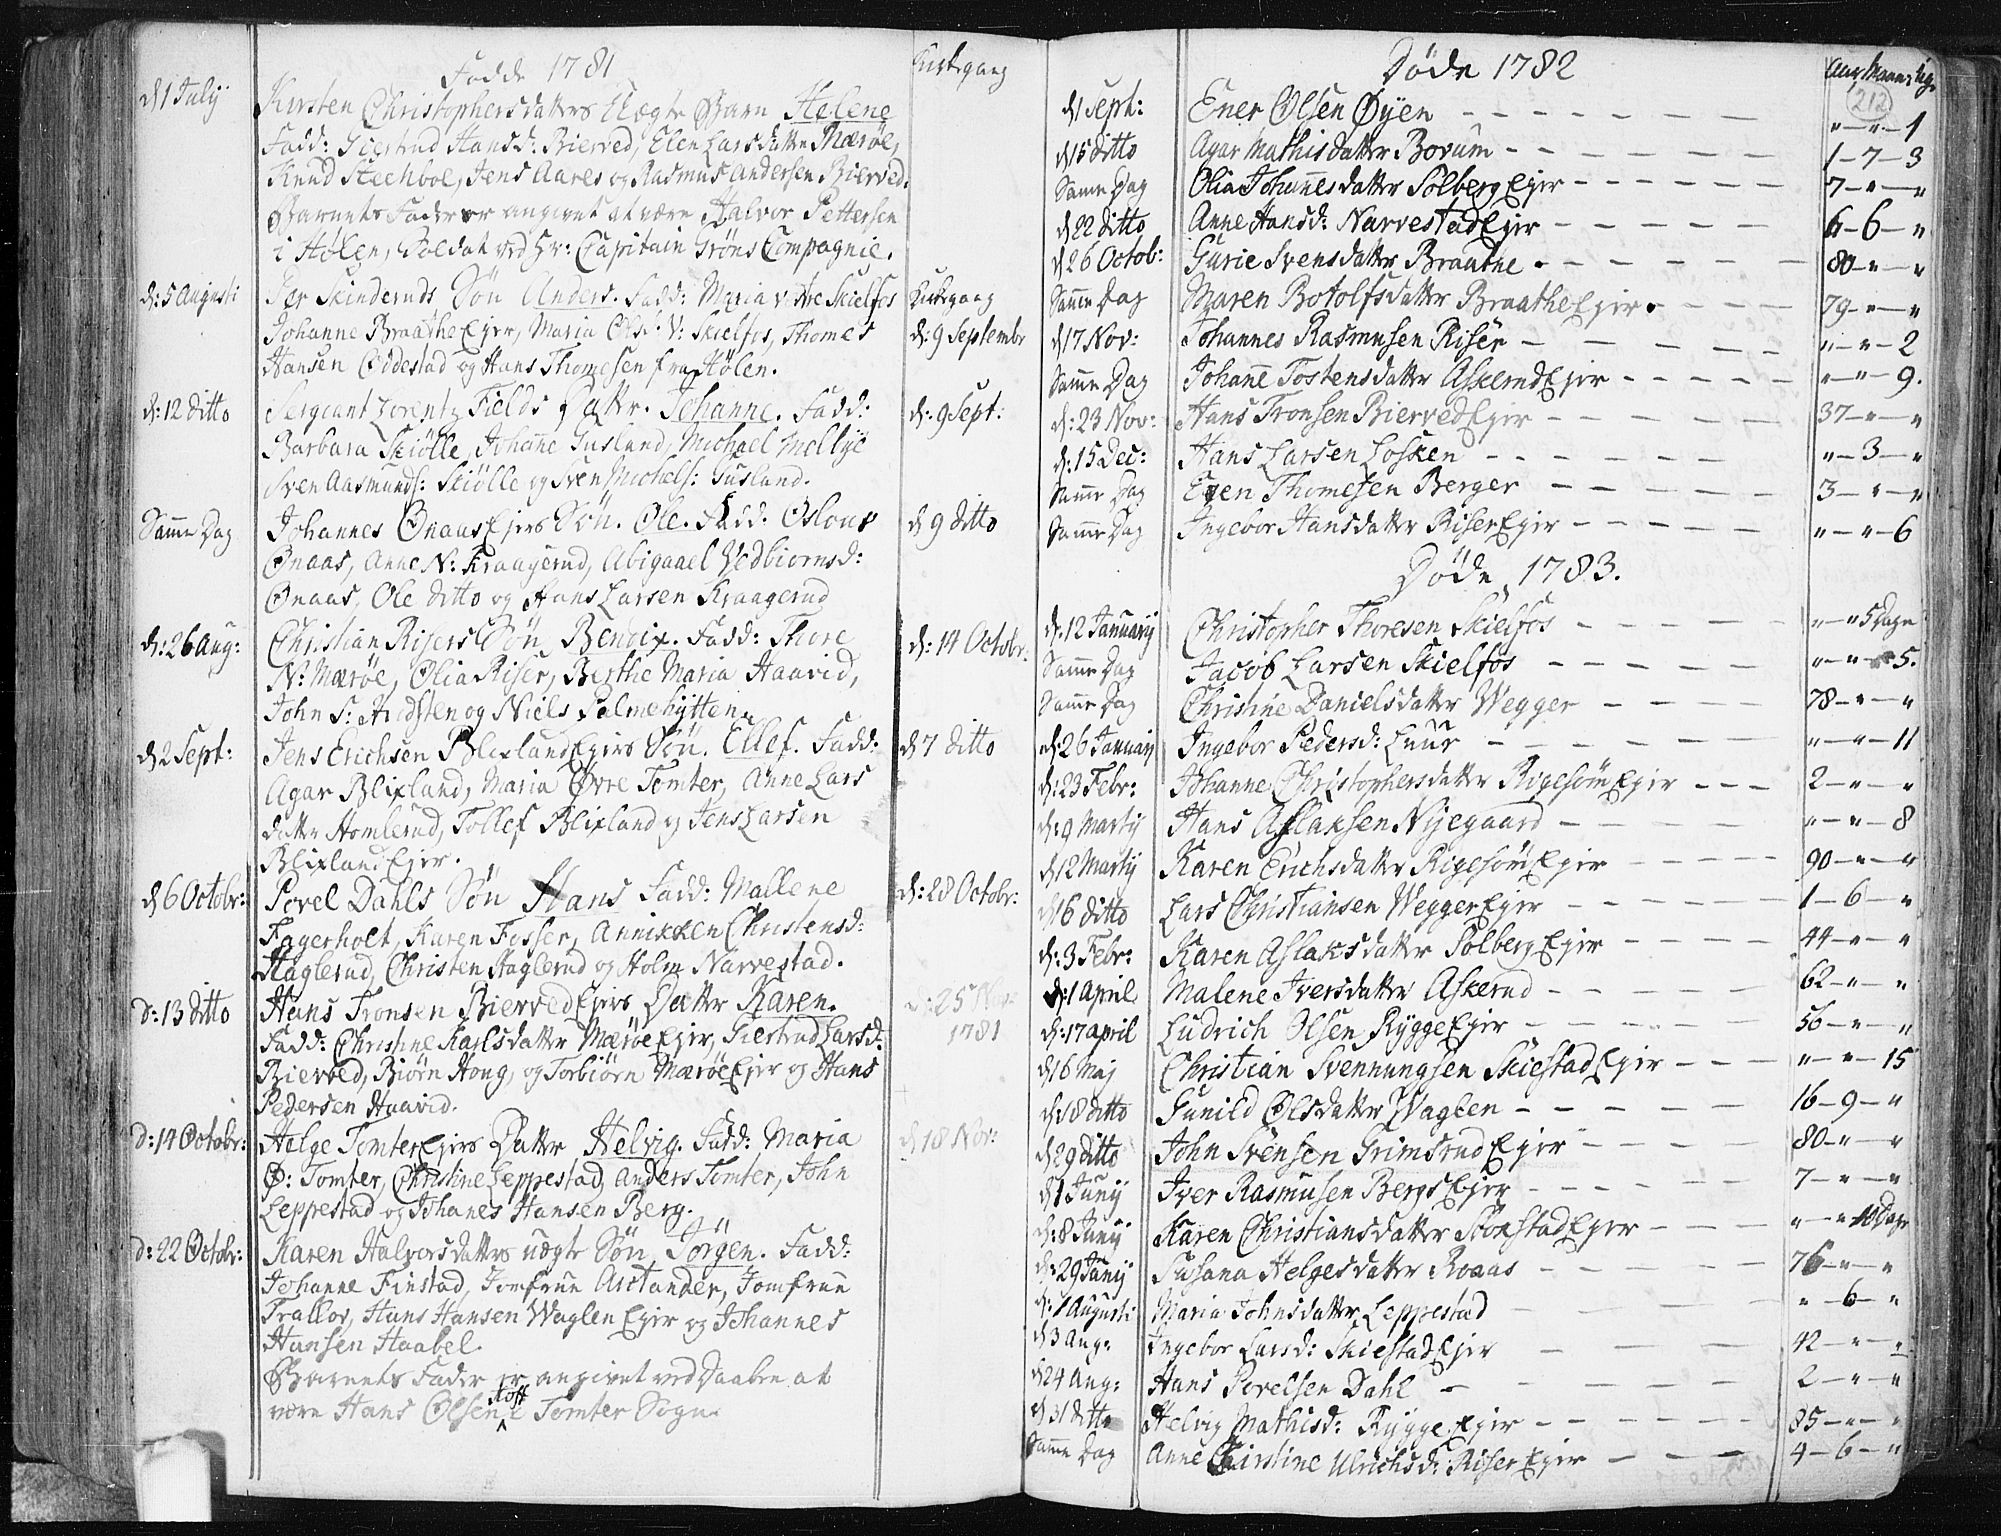 Fødde 1781
Kirkegang
d 1 July
Kirsten Christophersdatters Uægte Barn Helene
Fadd: Giertrud Hansd: Bierved, Elen Larsdatter Mærøe,
Knud Steehboe, Jens Aares og Rasmus Andersen Bierved.
Barnets Fader er angivet at være Halvor Pettersen
i Hølen, Soldat ved Hr: Capitain Grøns Compagnie.
d: 5 Augusti
Per Skinderuds Søn Anders. Fadd: Maria v: Skielfos
Kirkegang
Johanne Braathe Ejer, Maria Olsd: V: Skielfos, Thomes
d: 9 Septembr
Hansen Oddestad og Hans Thomesen fra Hølen.
d: 12 ditto
Sergeant Lorentz Fields Datter. Johanne. Fadd:
d: 9 Sept:
Barbara Skiølle, Johanne Gusland, Michael Mellbye
Sven Aasmunds: Skiølle og Sven Michels: Gusland.
Samme Dag
Johannes Ønaas Ejers Søn. Ole. Fadd: Oslour
d 9 ditto
Ønaas, Anne N: Kraagerud, Abigaael Vedbiørnsd:
Ønaas, Ole ditto og Hans Larsen Kraagerud
d: 26 Aug:
Christian Risers Søn Bendix. Fadd: Thore
d: 14 Octobr:
N: Mærøe, Olia Riser, Berthe Maria Haavid,
John S: Audsten og Niels Palmehytten.
d 2 Sept:
Jens Erichsen Blixland Ejers Søn. Ellef. Fadd:
d 7 ditto
Agar Blixland, Maria Øvre Tomter, Anne Lars
datter Homlerud, Tollef Blixland og Jens Larsen
Blixland Ejer.
d 6 Octobr:
Povel Dahls Søn Hans Fadd: Mallene
d: 28 Octobr:
Fagerholt, Karen Fosser, Annikken Christensd:
Haglerud, Christen Haglerud og Holm Narvestad.
d: 13 ditto
Hans Tronsen Bierved Ejers Datter Karen.
d: 25 Nov:
1781
Fadd: Christine Karlsdatter Mærøe Ejer, Giertrud Larsd:
Bierved, Biørn Hong, og Torbiørn Mærøe Ejer og Hans
Pedersen Haavid.
d: 14 Octobr:
Helge Tomter Ejers Datter Helvig. Fadd: Maria
d 18 Nov:
Ø: Tomter, Christine Leppestad, Anders Tomter, John
Leppestad og Johanes Hansen Berg.
d: 22 Octobr:
Karen Halvorsdatters uægte Søn Jørgen. Fadd:
Johanne Finstad, Jomfrue Arctander, Jomfrue
Trallov, Hans Hansen Waglen Ejer og Johannes
Hansen Haabel.
Barnets Fader er angivet ved Daaben at
være Hans Olsen Toft i Tomter Sogn.
Døde 1782
Aar, Maan: Dag.
212
d 1 Sept: Ener Olsen Øyen " - " - 1
d 15 ditto Agar Mathisdatter Borum 1 - 7 - 3
Samme Dag Olia Johannesdatter Solberg Ejer 7 - " - "
d 22 ditto Anne Hansd: Narvestad Ejer 6 - 6 - "
d 26 Octob: Gurie Svensdatter Braathe 80 - " - "
Samme Dag Maren Botolfsdatter Braathe Ejer 79 - " - "
d 17 Nov: Johannes Rasmusen Riser " - " - 2
Samme Dag Johane Tostensdatter Askerud Ejer " - " - 9.
d: 23 Nov: Hans Tronsen Bierved Ejer 37 - " - "
d: 15 Dec: Hans Larsen Losken " - 3 - "
Samme Dag Even Thomesen Berger 3 - " - "
Samme Dag Ingebor Hansdatter Riser Ejer " - " - 6
Døde 1783.
d: 12 January Christopher Thoresen Skielfos " - " 5 Dage
Samme Dag Jacob Larsen Skielfos " - " 5.
Samme Dag Christine Danielsdatter Wegger 78 - " - "
d: 26 January Ingebor Pedersd: Luur " - " - 11
d: 23 Febr: Johanne Christophersdatter Rigesøm Ejer 2 - " - "
d: 9 Marty Hans Aslaksen Nyegaard " - " - 8
d 12 Marty Karen Erichsdatter Rigesøm Ejer 90 - " - "
d 16 ditto Lars Christiansen Wegger Ejer 1 - 6 - "
d: 3 Febr: Karen Aslaksdatter Solberg Ejer 44 - " - "
d: 1 April Malene Iversdatter Askerud 62 - " - "
d: 17 april Ludrich Olsen Rygge Ejer 56 - " - "
d 16 Maj Christian Svennungsen Skiestad Ejer " - " - 15
d: 18 ditto Gunild Olsdatter Waglen 16 - 9 - "
d 29 ditto John Svensen Grimsrud Ejer 80 - " - "
d 1 Juny Iver Rasmusen Bergs Ejer 7 - " - "
d: 8 Juny Karen Christiansdatter Stokstad Ejer " - " 10 Dage
d: 29 Juny Susana Helgesdatter Roaas 76 - " - "
d: 1 Augusti Maria Johnsdatter Leppestad " - 6 - "
d 3 Aug: Ingebor Larsd: Skiestad Ejer 42 - " - "
d 24 Aug: Hans Povelsen Dahl 2 - " - "
d 31 ditto Helvig Mathisd: Rygge Ejer 85 - " - "
Samme Dag Anne Christine Ulrichsd: Riser Ejer 4 - 6 - "